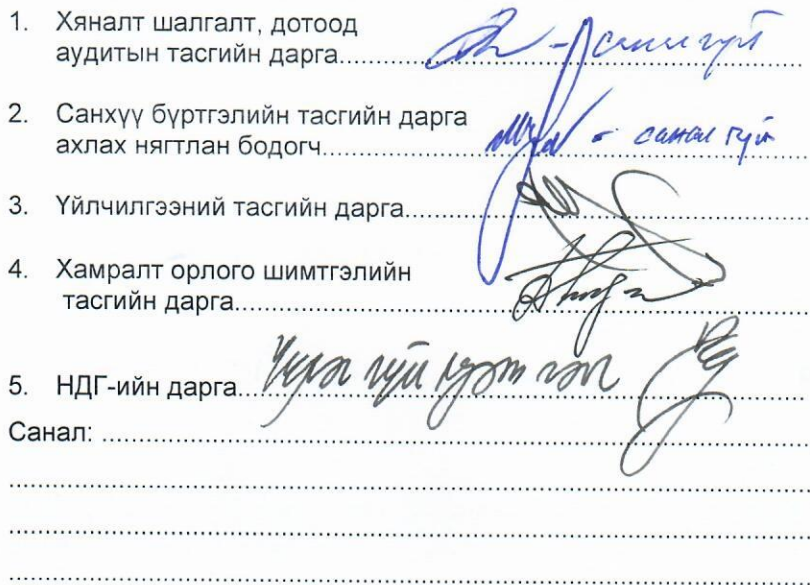 1. Хяналт шалгалт, дотоод
аудитын тасгийн дарга.......... - санал гүй
2. Санхүү бүртгэлийн тасгийн дарга
ахлах нягтлан бодогч.......... - санал гүй
3. Үйлчилгээний тасгийн дарга..........
4. Хамралт орлого шимтгэлийн
тасгийн дарга..........
5. НДГ-ийн дарга.......... гүй
Санал: ..........